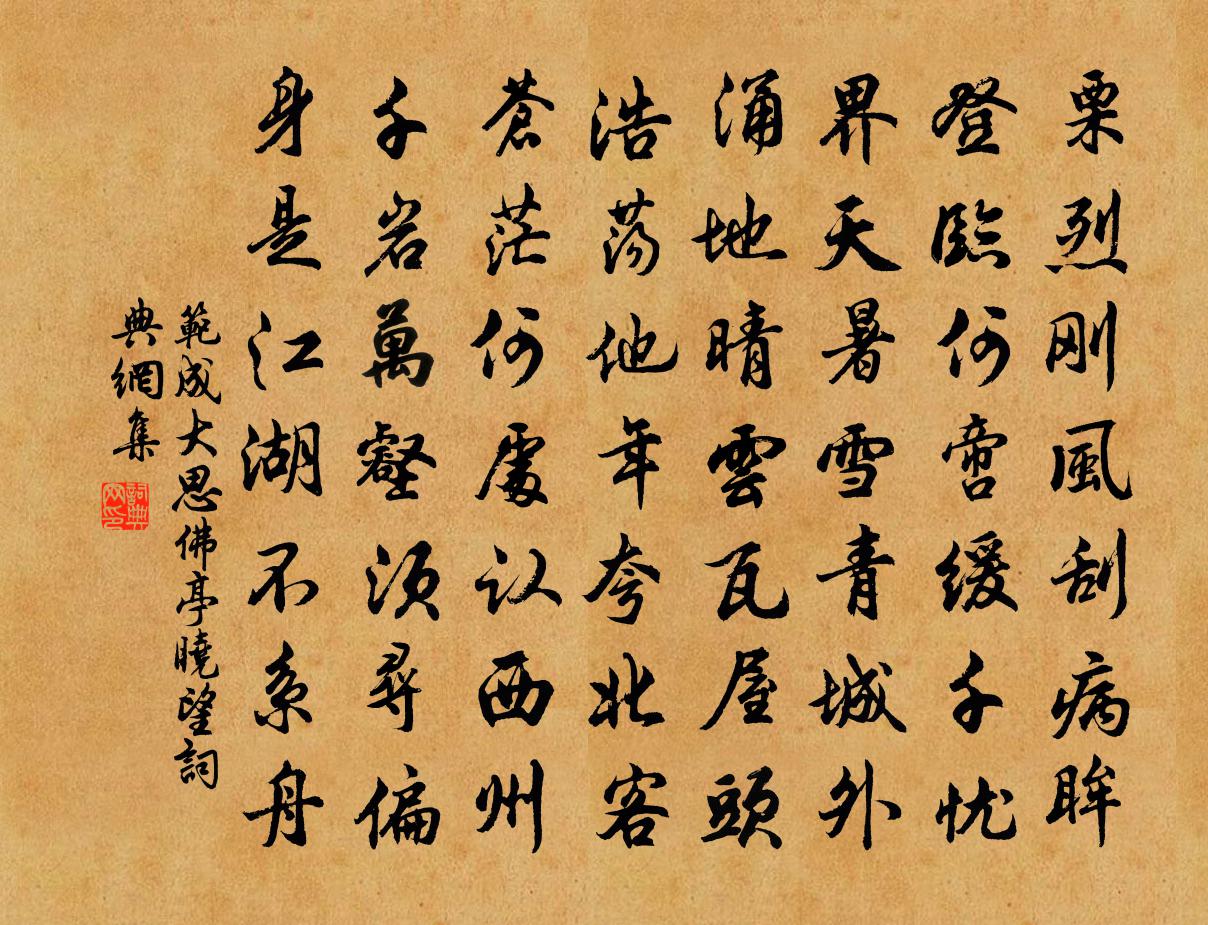 栗烈刚風刮病眸
登臨何啻緩千忧
界天暑雪青城外
涌地晴雲瓦屋頭
浩蕩他年夸北客
蒼茫何處认西州
千岩萬壑须尋偏
身是江湖不系舟
範成大思佛亭曉望詞
典網集
詞典
网印